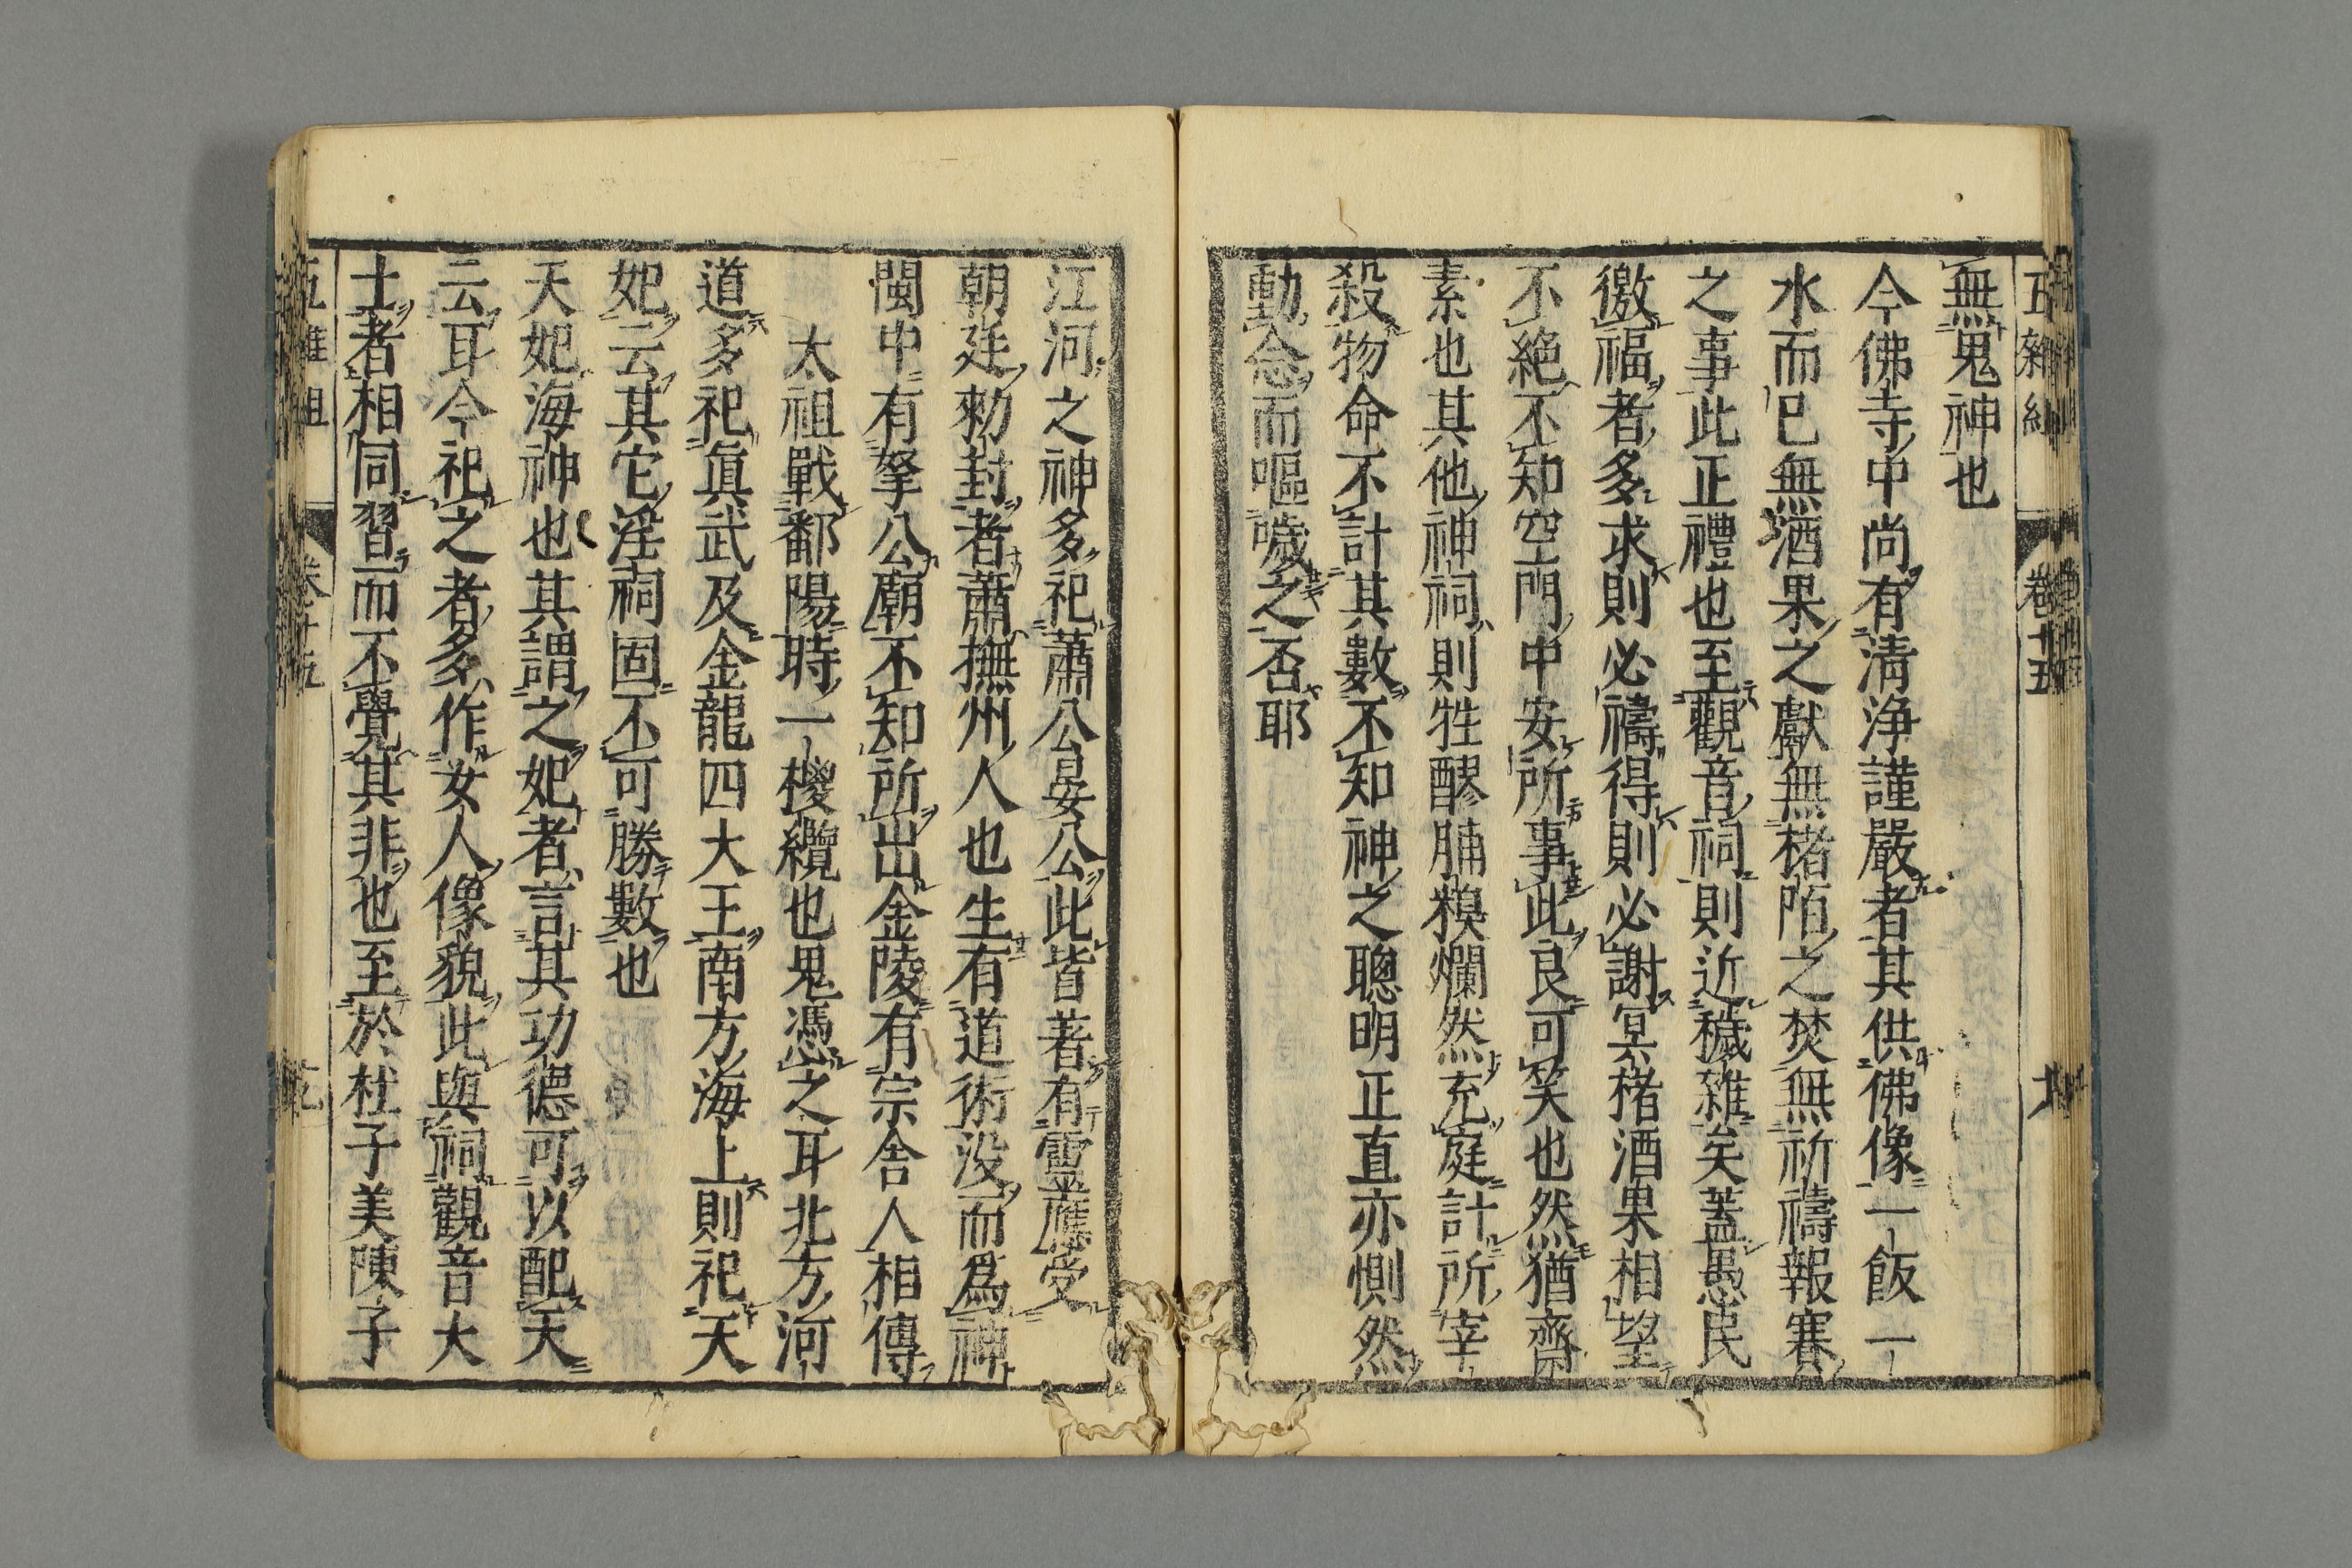 無鬼神也
今佛寺中尚有清浄謹嚴者其供佛像一飯一
水而已無酒果之獻無楮陌之焚無祈禱報賽
之事此正禮也至觀音祠則近穢雜矣蓋愚民
徼福者多求則必禱得則必謝冥楮酒果相望
不絶不知空門中安所事此良可笑也然猶齋
素也其他神祠則牲醪脯糗爛然充庭計所宰
殺物命不計其數不知神之聰明正直亦惻然
動念而嘔噦之否耶
江河之神多祀蕭公晏公此皆著有靈應受
朝廷勑封者蕭撫州人也生有道術没而爲神
閩中有拏公廟不知所出金陵有宗舍人相傳
太祖戰鄱陽時一椶纜也鬼憑之耳北方河
道多祀眞武及金龍四大王南方海上則祀天
妃云其它淫祠固不可勝數也
天妃海神也其謂之妃者言其功德可以配天
云耳今祀之者多作女人像貌此與祠觀音大
士者相同習而不覺其非也至於杜子美陳子
卷十五